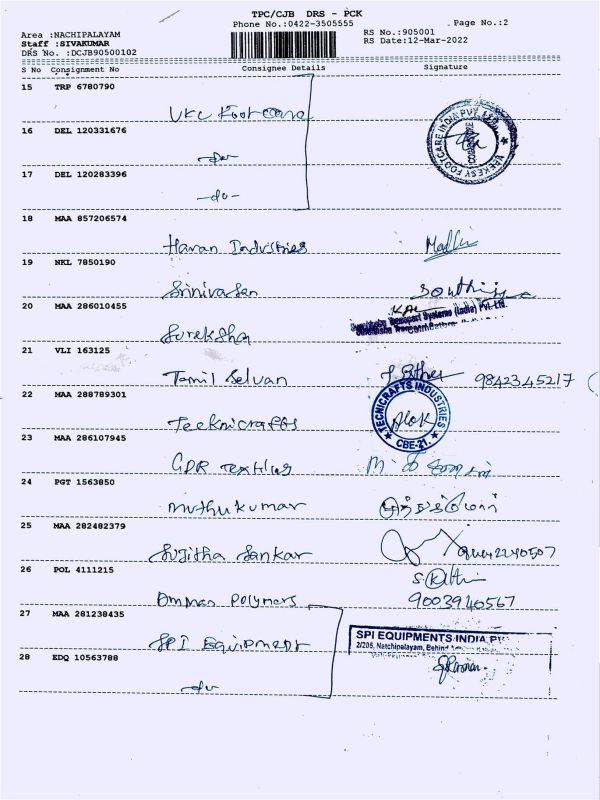 TPC/CJB DRS - PCK
Phone No.:0422-3505555
Page No.:2
Area :NACHIPALAYAM
Staff :SIVAKUMAR
DRS No. :DCJB90500102
RS No.:905001
RS Date:12-Mar-2022
S No Consignment No Consignee Details Signature
15 TRP 6780790
VKC Foot Care
16 DEL 120331676
-do-
17 DEL 120283396
-do-
VEEKESY FOOTCARE INDIA PVT. LTD.
18 MAA 857206574
Haran Industries
19 NKL 7850190
Srinivasan
20 MAA 286010455
Sureksha
Transport Systems (India) Pvt. Ltd.
21 VLI 163125
Tamil Selvan 9842345217
22 MAA 288789301
Tecknicrafts
TECNICRAFTS INDUSTRIES
Alok
CBE-21.
23 MAA 286107945
GDR Textiles
24 PGT 1563850
Muthukumar முத்துக்குமார்
25 MAA 282482379
Sujitha Sankar
26 POL 4111215
Amman Polymers 9003940567
27 MAA 281238435
SPI Equipment
SPI EQUIPMENTS INDIA
2/205, Natchipalayam, Behind
28 EDQ 10563788
-do-